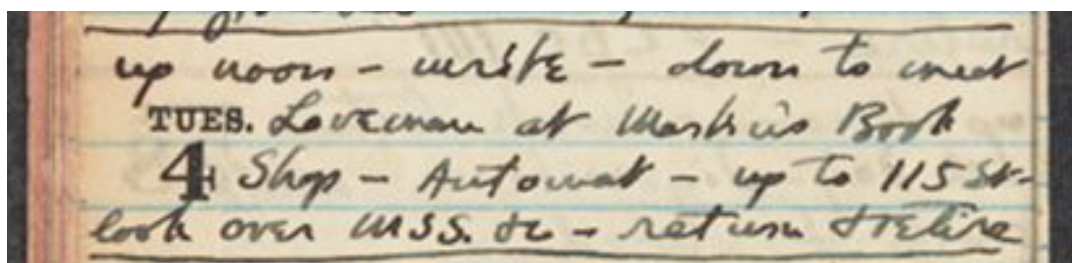 up noon – write – down to meet
TUES. Loveman at Martin's Book
4 Shop – Automat – up to 115 St –
look over MSS. &c – return & retire